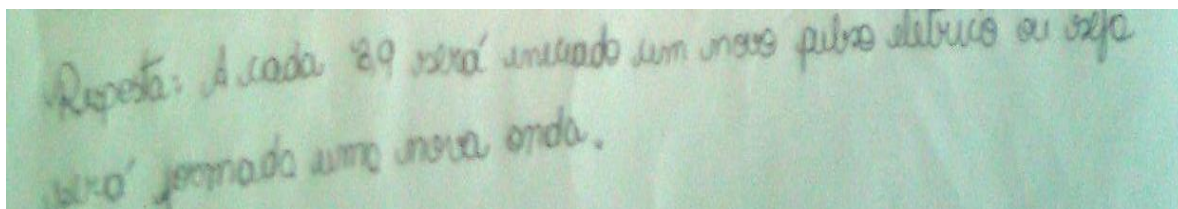 Resposta: A cada 89 será iniciado um novo pulso eletrico ou seja
será formada uma nova onda.